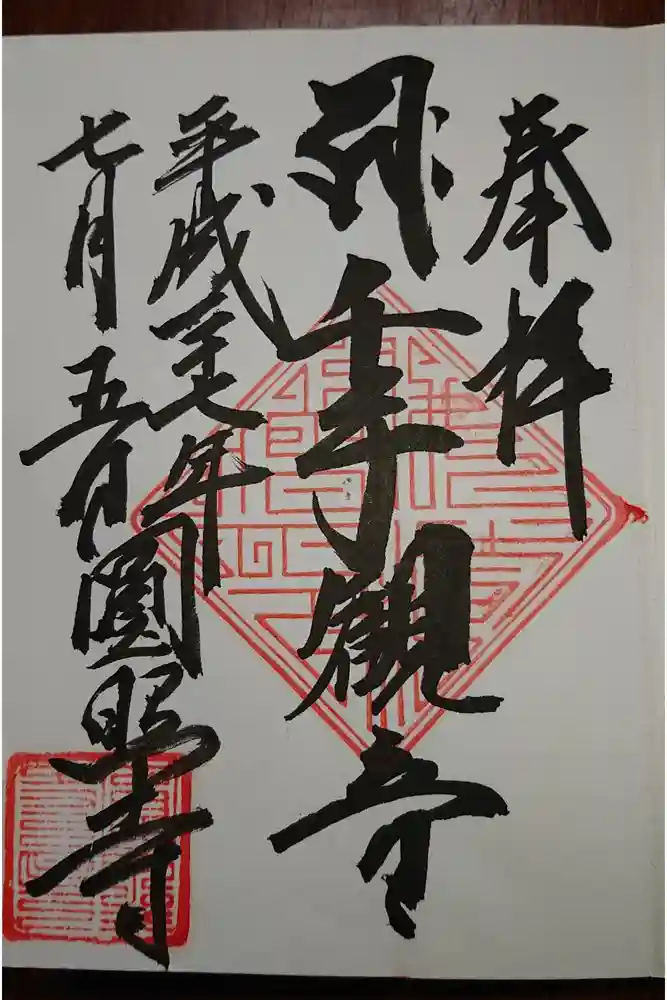 奉拝
千手觀音
平成二十七年
七月五日
圓照寺